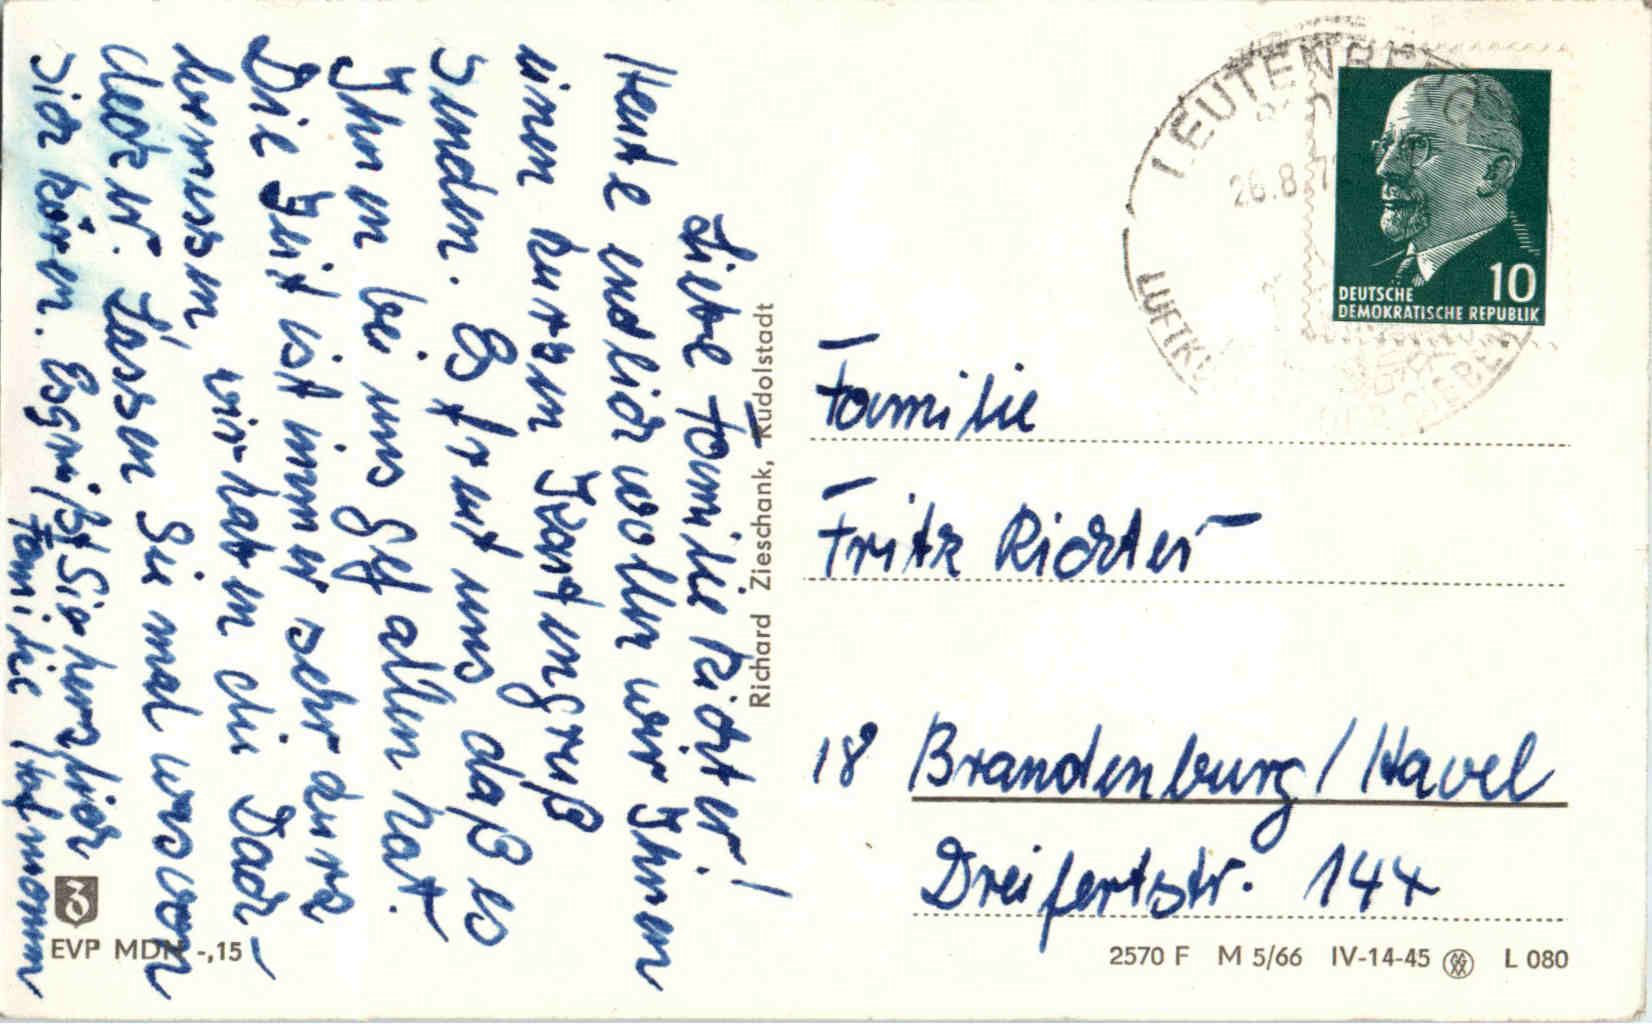 Liebe Familie Richter!
Heute endlich wollen wir Ihnen
einen kurzen Kartengruß
senden. Es freut uns daß es
Ihnen bei uns gefallen hat.
Die Zeit ist immer sehr kurz
bemessen, wir haben die Dach-
decker. Lassen Sie mal was von
sich hören. Es grüßt Sie herzlich
Familie Hofmann
EVP MDN -,15
Richard Zieschank, Rudolstadt
LEUTENBERG
26.8.7
LUFTKU
DER SIEBEN
10
DEUTSCHE
DEMOKRATISCHE REPUBLIK
Familie
Fritz Richter
18 Brandenburg/Havel
Dreifertstr. 144
2570 F M 5/66 IV-14-45 L 080